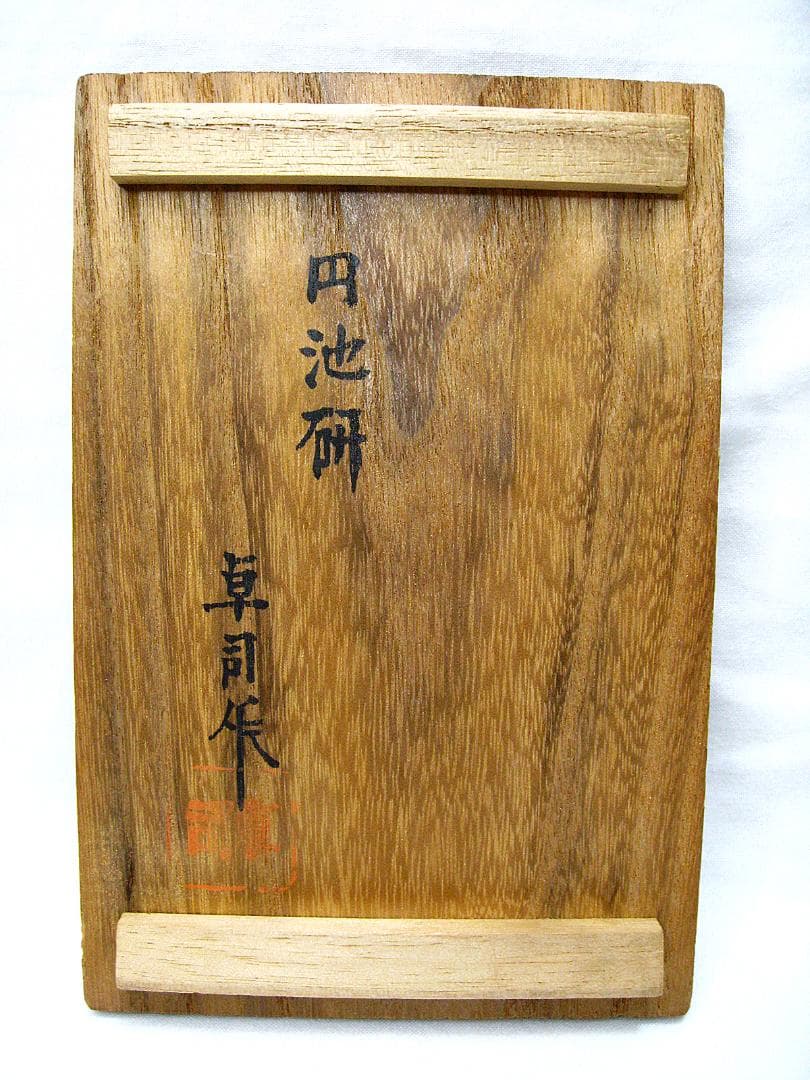 円池研
卓司作